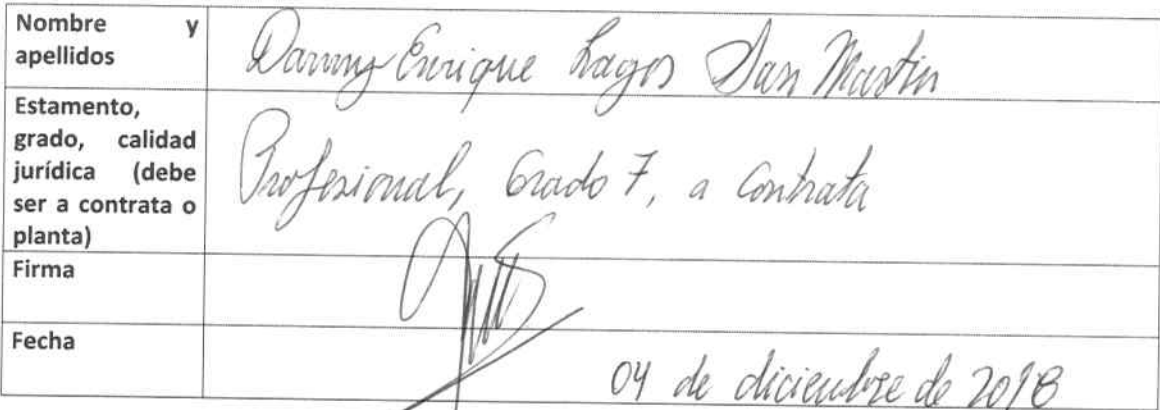 Nombre y
apellidos
Danny Enrique Lagos San Martin
Estamento,
grado, calidad
jurídica (debe
ser a contrata o
planta)
Profesional, Grado 7, a Contrata
Firma
Fecha
04 de diciembre de 2018